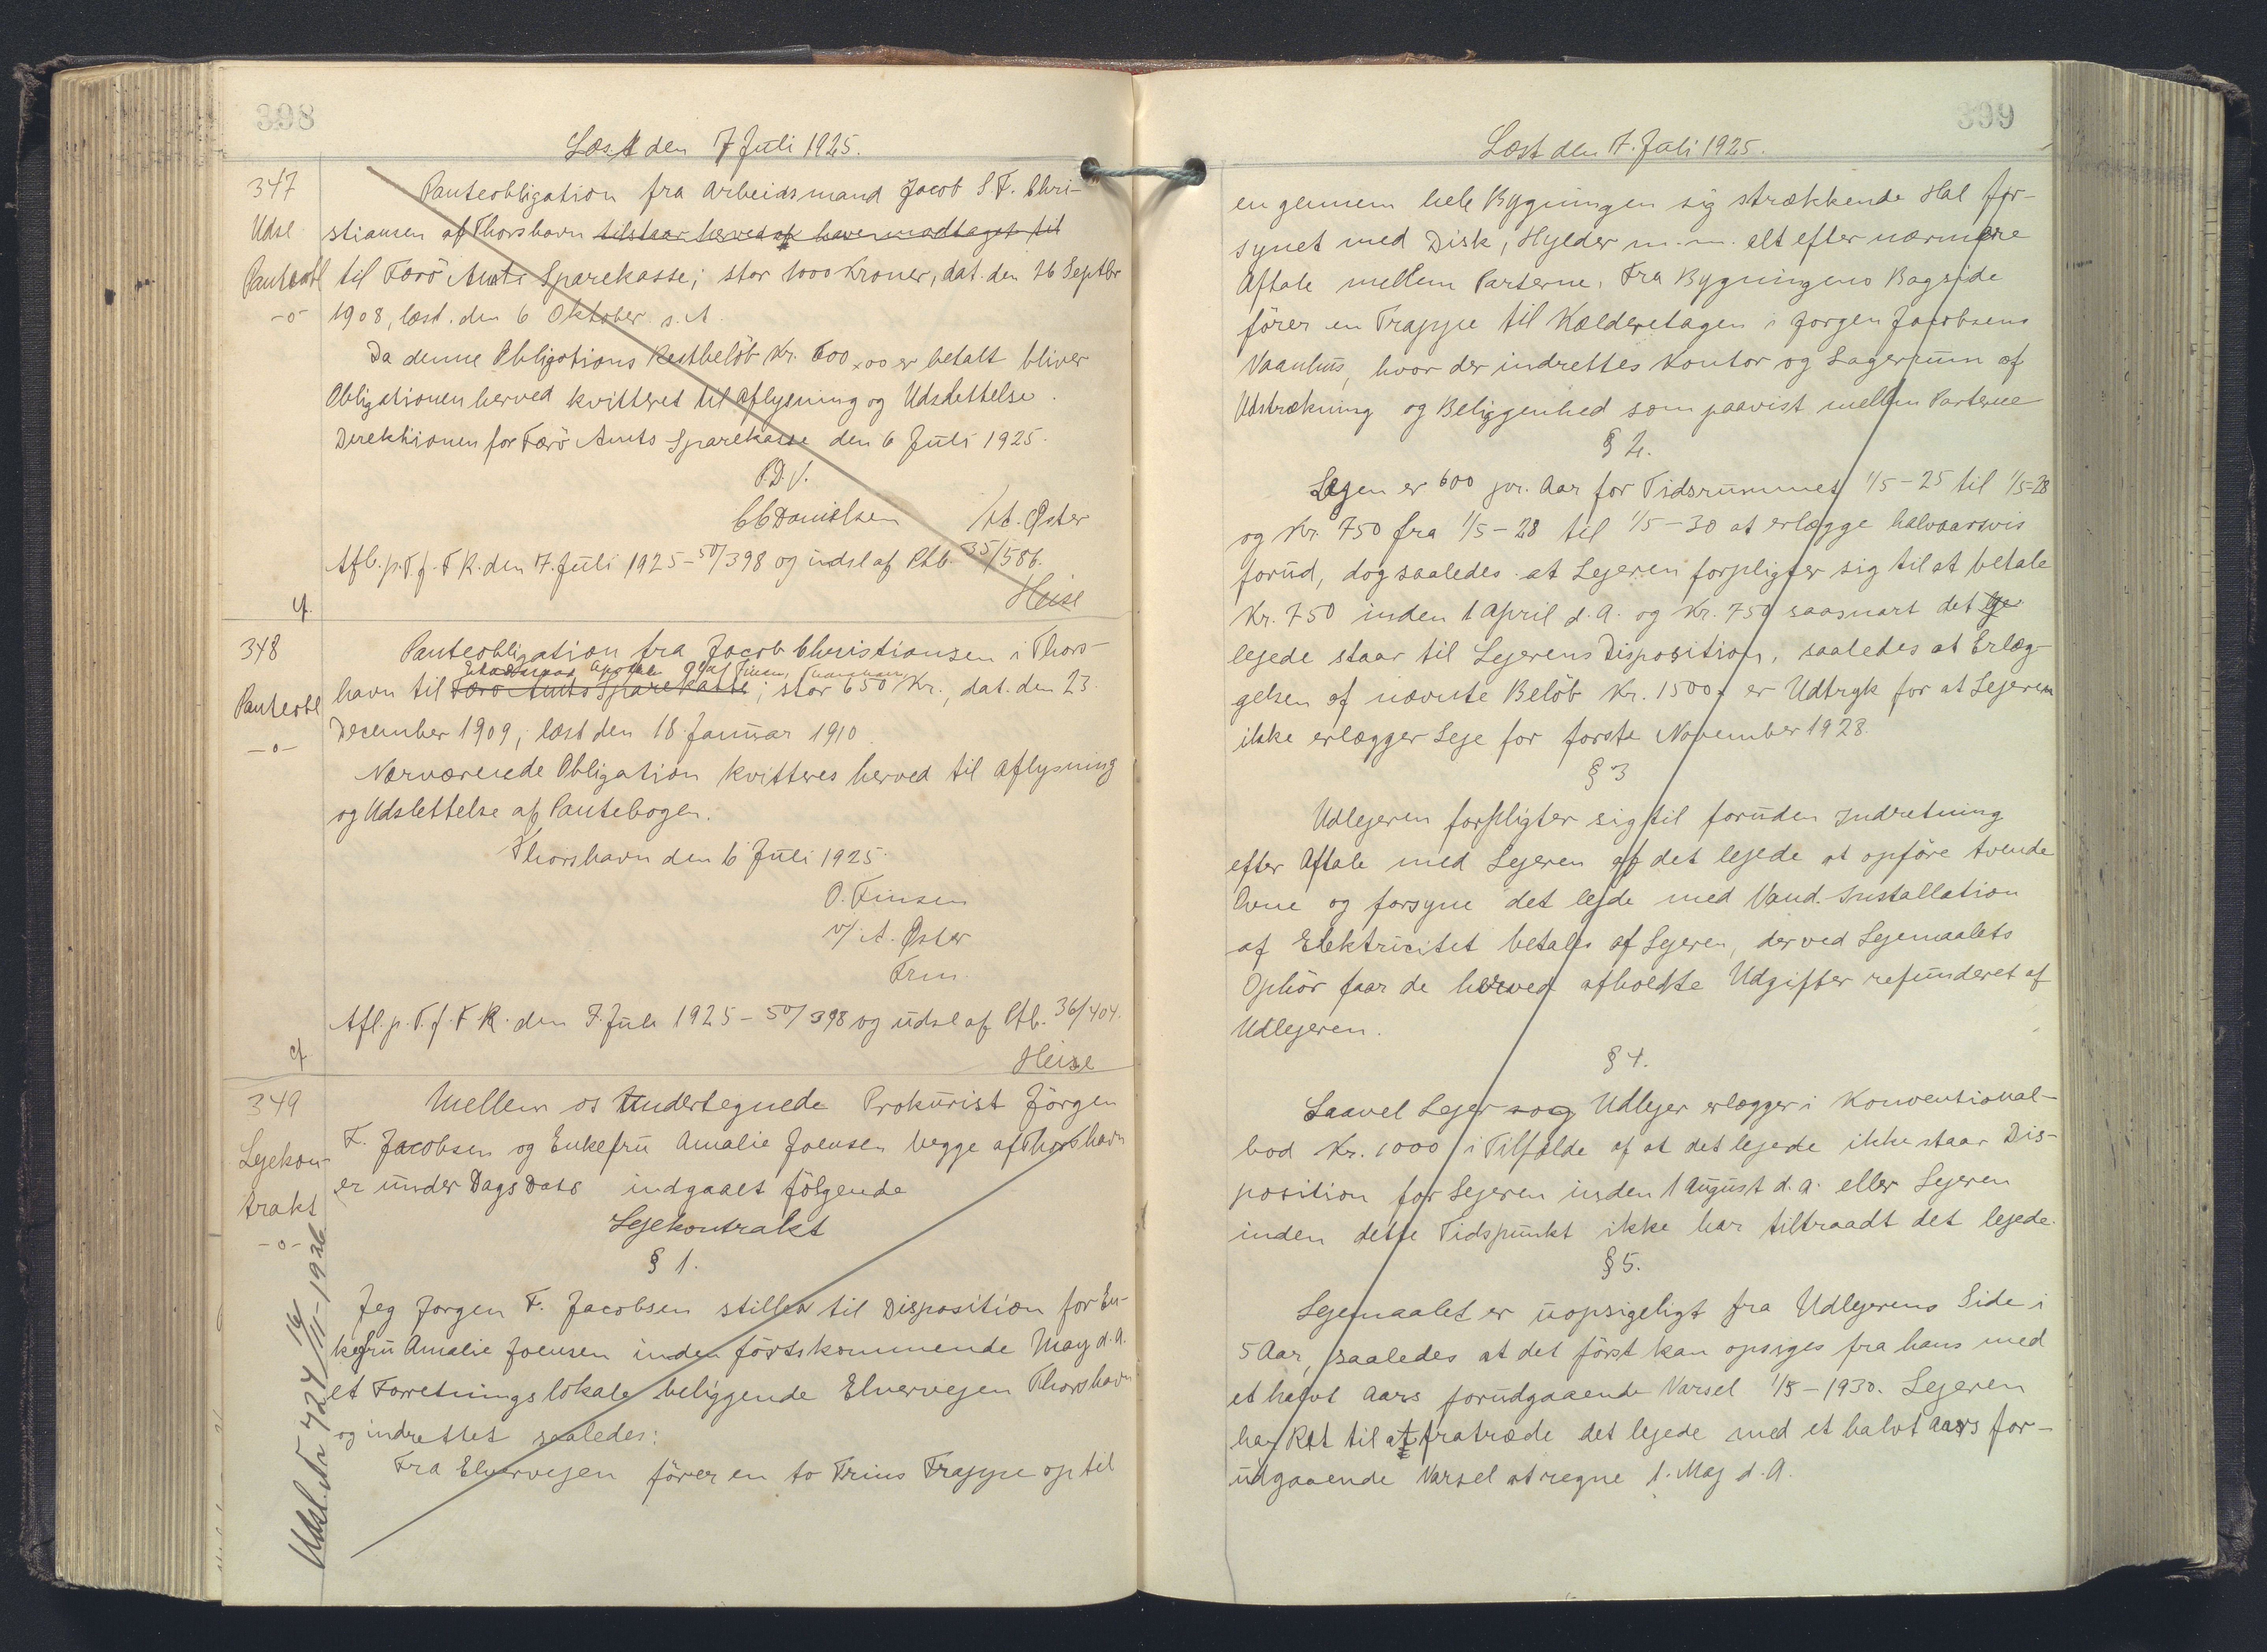 398
Læst den 7 Juli 1925.
347
Udsl
Panteobl
-o-
Panteobligation fra Arbeidsmand Jacob S. F. Chri-
stiansen af Thorshavn tilstaar herved at have modtaget til
til Færö Amts Sparekasse; stor 1000 Kroner, dat. den 26 Septbr
1908, læst. den 6 Oktober s. A.
Da denne Obligations Restbelöb Kr. 600,00 er betalt bliver
Obligationen herved kvitteret til Aflysning og Udslettelse.
Direktionen for Færö Amts Sparekasse den 6 Juli 1925.
P.D.V.
C C Danielsen / A. Øster
Afl. p. T. f. F R. den 7. Juli 1925 - 50/398 og udsl af Ptb. 35/586.
Heise
cf.
348
Panteobl
-o-
Panteobligation fra Jacob Christiansen i Thors-
Etatsraad Apoteker Olaf Finsen, Thorshavn
havn til Færö Amts Sparekasse; stor 650 Kr., dat. den 23.
December 1909, læst den 18 Januar 1910.
Nærværende Obligation kvitteres herved til Aflysning
og Udslettelse af Pantebogen.
Thorshavn den 6 Juli 1925.
O. Finsen
v/ A. Øster
Frm.
Afl. p. T. f. F R. den 7. Juli 1925 - 50/398 og udsl af Ptb. 36/404.
Heise
cf
349
Lejekon-
trakt
-o-
Udsl. Nr 724 16/11-1926
Mellem os Undertegnede Prokurist Jörgen
F. Jacobsen og Enkefru Amalie Joensen begge af Thorshavn
er under Dags Dato indgaaet fölgende
Lejekontrakt
§ 1.
Jeg Jorgen F. Jacobsen stiller til Disposition for En-
kefru Amalie Joensen inden förstkommende Maj d. A.
et Forretningslokale beliggende Elvervejen Thorshavn
og indrettet saaledes:
Fra Elvervejen förer en to Trins Trappe op til
399
Læst den 7. Juli 1925.
en gennem hele Bygningen sig strækkende Hal for-
synet med Disk, Hylder m. m. alt efter nærmere
Aftale mellem Parterne. Fra Bygningens Bagside
förer en Trappe til Kælderetagen i Jorgen Jacobsens
Vaanhus, hvor der indrettes Kontor og Lagerrum af
Udstrækning og Beliggenhed som paavist mellem Parterne
§ 2.
Lejen er 600 pr. Aar for Tidsrummet 1/5-25 til 1/5-28
og Kr. 750 fra 1/5-28 til 1/5-30 at erlægge halvaarsvis
forud, dog saaledes at Lejeren forpligter sig til at betale
Kr. 750 inden 1 April d. A. og Kr. 750 saasnart det
lejede staar til Lejerens Disposition, saaledes at Erlæg-
gelsen af nævnte Belöb Kr. 1500, er Udtryk for at Lejeren
ikke erlægger Leje for forste November 1928.
§ 3
Udlejeren forpligter sig til foruden Indretning
efter Aftale med Lejeren af det lejede at opföre tvende
Ovne og forsyne det lejde med Vand. Installation
af Elektricitet betales af Lejeren, der ved Lejemaalets
Ophör faar de herved afholdte Udgifter refunderet af
Udlejeren.
§ 4.
Saavel Lejer sog Udlejer erlægger i Konventional-
bod Kr. 1000 i Tilfælde af at det lejede ikke staar Dis-
position for Lejeren inden 1 August d. A. eller Lejeren
inden dette Tidspunkt ikke har tiltraadt det lejede.
§ 5.
Lejemaalet er uopsigeligt fra Udlejerens Side i
5 Aar, saaledes at det först kan opsiges fra hans med
et halvt Aars forudgaaende Varsel 1/5-1930. Lejeren
har Ret til at fratræde det lejede med et halvt Aars for-
udgaaende Varsel at regne 1. Maj d. A.